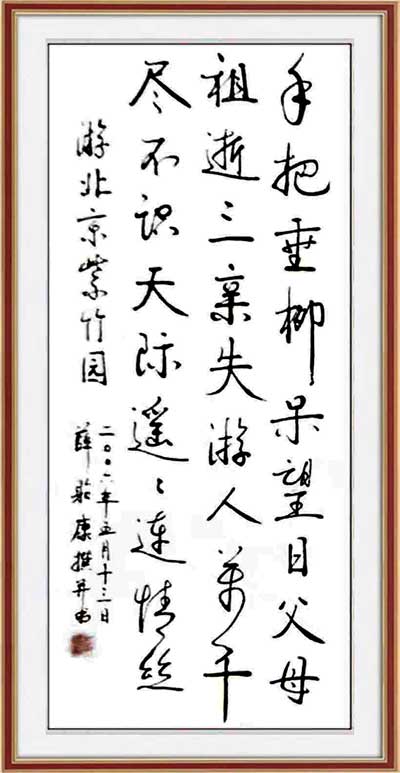 手把垂柳呆望日父母
祖逝三亲失游人萬千
尽不识天际遥々连情丝
游北京紫竹园
二〇〇六年五月十三日
薛康撰并书